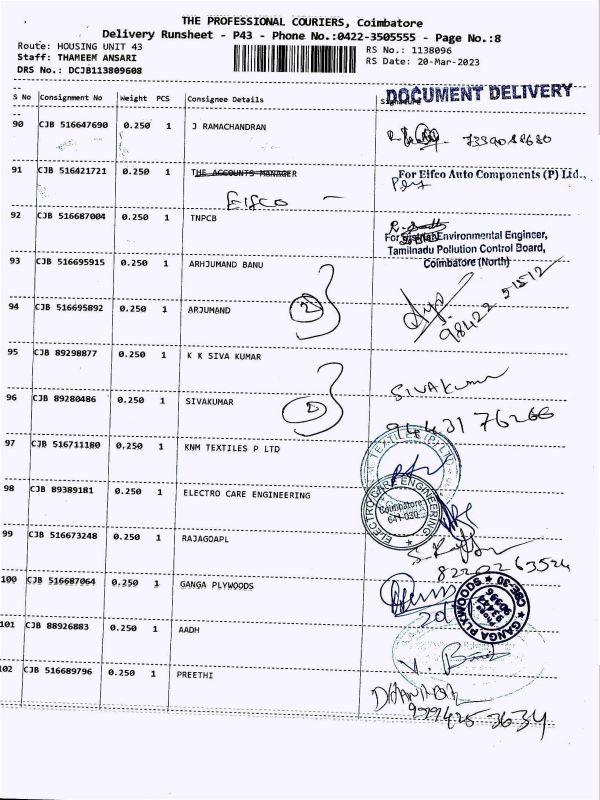 THE PROFESSIONAL COURIERS, Coimbatore
Delivery Runsheet - P43 - Phone No.:0422-3505555 - Page No.:8
Route: HOUSING UNIT 43
RS No.: 1138096
Staff: THAMEEM ANSARI
RS Date: 20-Mar-2023
DRS No.: DCJB113809608
DOCUMENT DELIVERY
S No Consignment No Weight PCS Consignee Details
90 CJB 516647690 0.250 1 J RAMACHANDRAN
91 CJB 516421721 0.250 1 THE ACCOUNTS MANAGER
For Elfco Auto Components (P) Ltd.,
Elfco
92 CJB 516687004 0.250 1 TNPCB
For District Environmental Engineer,
Tamilnadu Pollution Control Board,
Coimbatore (North)
93 CJB 516695915 0.250 1 ARHJUMAND BANU
2
98422 51512
94 CJB 516695892 0.250 1 ARJUMAND
95 CJB 89298877 0.250 1 K K SIVA KUMAR
SIVAKUMAR
96 CJB 89280486 0.250 1 SIVAKUMAR
94431 76266
97 CJB 516711180 0.250 1 KNM TEXTILES P LTD
TEXTILES (P) LTD
98 CJB 89389181 0.250 1 ELECTRO CARE ENGINEERING
ELECTRO CARE ENGINEERING
Coimbatore
641 030
99 CJB 516673248 0.250 1 RAJAGOAPL
100 CJB 516687064 0.250 1 GANGA PLYWOODS
GANGA PLYWOODS
CBE-30
101 CJB 88926883 0.250 1 AADH
102 CJB 516689796 0.250 1 PREETHI